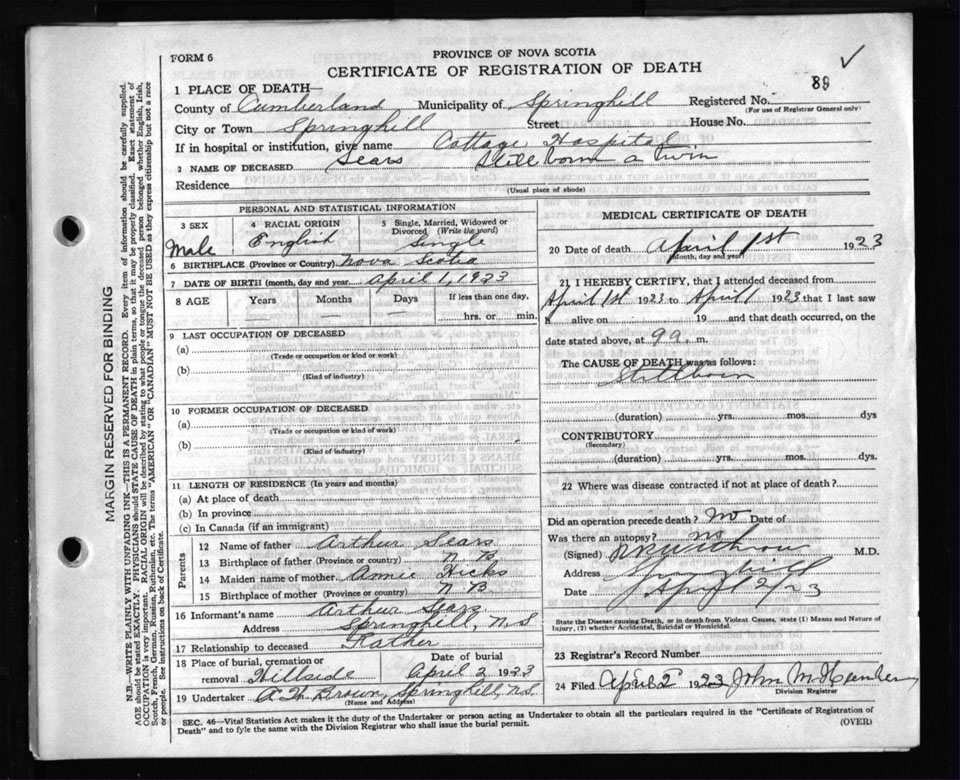 FORM 6
PROVINCE OF NOVA SCOTIA
CERTIFICATE OF REGISTRATION OF DEATH
1 PLACE OF DEATH—
County of Cumberland Municipality of Springhill Registered No. 89
(For use of Registrar General only)
City or Town Springhill Street House No.
If in hospital or institution, give name Cottage Hospital
2 NAME OF DECEASED Sears Stillborn a Twin
Residence
(Usual place of abode)
PERSONAL AND STATISTICAL INFORMATION
3 SEX Male
4 RACIAL ORIGIN English
5 Single, Married, Widowed or Divorced (Write the word) Single
6 BIRTHPLACE (Province or Country) Nova Scotia
7 DATE OF BIRTH (month, day and year) April 1, 1923
8 AGE Years Months Days If less than one day, hrs. or min.
9 LAST OCCUPATION OF DECEASED
(a)
(Trade or occupation or kind or work)
(b)
(Kind of industry)
10 FORMER OCCUPATION OF DECEASED
(a)
(Trade or occupation or kind of work)
(b)
(Kind of industry)
11 LENGTH OF RESIDENCE (In years and months)
(a) At place of death
(b) In province
(c) In Canada (if an immigrant)
Parents
12 Name of father Arthur Sears
13 Birthplace of father (Province or country) N B
14 Maiden name of mother Annie Hicks
15 Birthplace of mother (Province or country) N B
16 Informant's name Arthur Sears
Address Springhill, N.S
17 Relationship to deceased Father
18 Place of burial, cremation or removal Hillside Date of burial April 2 1923
19 Undertaker A. Th Brown, Springhill, N.S.
(Name and Address)
MEDICAL CERTIFICATE OF DEATH
20 Date of death April 1st 1923
(Month, day and year)
21 I HEREBY CERTIFY, that I attended deceased from
April 1st 1923 to April 1 1923 that I last saw
h alive on 19 and that death occurred, on
date stated above, at 9 a. m.
The CAUSE OF DEATH was as follows:
Stillborn
(duration) yrs. mos. dys
CONTRIBUTORY
(Secondary)
(duration) yrs. mos. dys.
22 Where was disease contracted if not at place of death?
Did an operation precede death? No Date of
Was there an autopsy? no
(Signed) M.D.
Address Springhill
Date Apr 2/23
State the Disease causing Death, or in death from Violent Causes, state (1) Means and Nature of
Injury, (2) whether Accidental, Suicidal or Homicidal.
23 Registrar's Record Number
24 Filed April 2 1923 John M
Division Registrar
SEC. 46—Vital Statistics Act makes it the duty of the Undertaker or person acting as Undertaker to obtain all the particulars required in the "Certificate of Registration of
Death" and to fyle the same with the Division Registrar who shall issue the burial permit. (OVER)
MARGIN RESERVED FOR BINDING
N.B.—WRITE PLAINLY WITH UNFADING INK—THIS IS A PERMANENT RECORD. Every item of information should be carefully supplied.
AGE should be stated EXACTLY. PHYSICIANS should STATE CAUSE OF DEATH in plain terms, so that it may be properly classified. Exact statement of
OCCUPATION is very important. RACIAL ORIGIN will be described by stating to what people or tongue the deceased person belonged whether English, Irish,
Scotch, French, German, Russian, Ruthenian, etc. The terms "AMERICAN" OR "CANADIAN" MUST NOT BE USED as they express citizenship but not a race
or people. See instructions on back of Certificate.